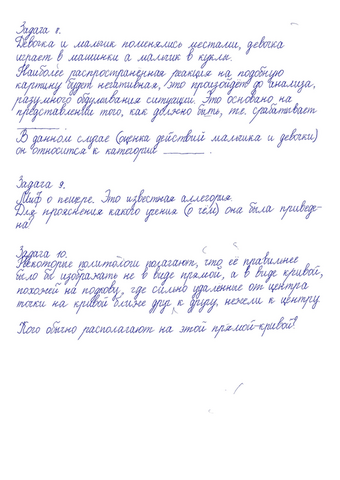 Задача 8.
Девочка и мальчик поменялись местами, девочка
играет в машинки а мальчик в куклы.
Наиболее распространенная реакция на подобную
картину будет негативная, это произойдет до анализа,
разумного обдумывания ситуации. Это основано на
представлении того, как должно быть, т.е. срабатывает
________.
В данном случае (оценка действий мальчика и девочки)
он относится к категории ________.
Задача 9.
Миф о пещере. Это известная аллегория.
Для прояснения какого учения (о чём) она была приведе-
на?
Задача 10.
Некоторые политологи полагают, что её правильнее
было бы изображать не в виде прямой, а в виде кривой,
похожей на подкову, где сильно удалённые от центра
точки на кривой ближе друг к другу, нежели к центру
Кого обычно располагают на этой прямой-кривой?